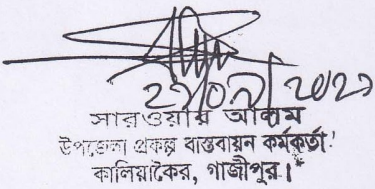 সারওয়ার আলম
উপজেলা প্রকল্প বাস্তবায়ন কর্মকর্তা
কালিয়াকৈর, গাজীপুর।